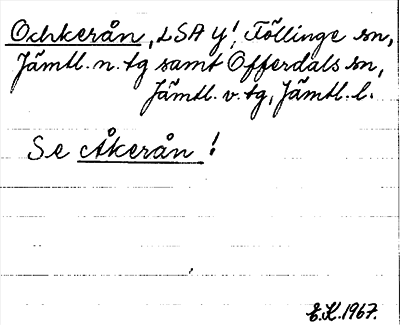 Ochkerån, LSA y!, Föllinge sn,
Jämtl. n. tg samt Offerdals sn,
Jämtl. v. tg, Jämtl. l.
Se Åkerån!
E.K. 1967.